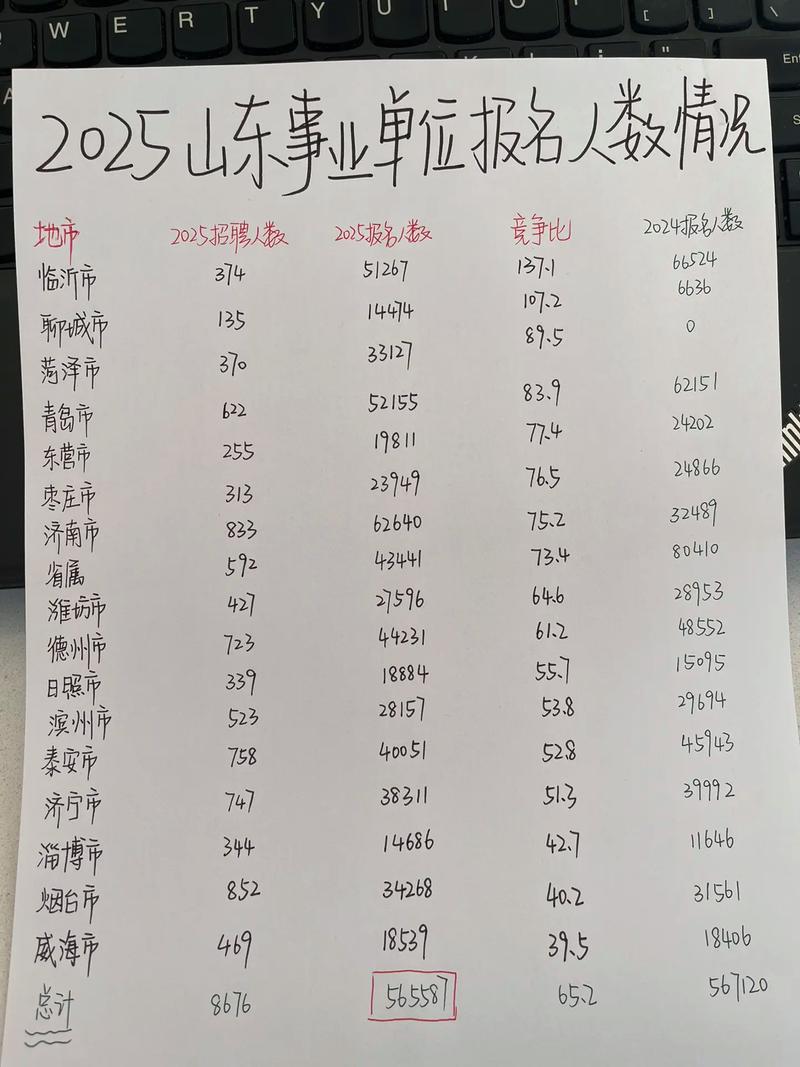 Q W E R T Y U I O P [ ]
2025山东事业单位报名人数情况
地市 2025招聘人数 2025报名人数 竞争比 2024报名人数
临沂市 374 51267 137.1 66524
聊城市 135 14474 107.2 6636
菏泽市 370 33127 89.5 0
青岛市 622 52155 83.9 62151
东营市 255 19811 77.4 24202
枣庄市 313 23949 76.5 24866
济南市 833 62640 75.2 32489
省属 592 43441 73.4 80410
潍坊市 427 27596 64.6 28953
德州市 723 44231 61.2 48552
日照市 339 18884 55.7 15095
滨州市 523 28157 53.8 29694
泰安市 758 40051 52.8 45943
济宁市 747 38311 51.3 39992
淄博市 344 14686 42.7 11646
烟台市 852 34268 40.2 31561
威海市 469 18539 39.5 18406
总计 8676 565587 65.2 567120